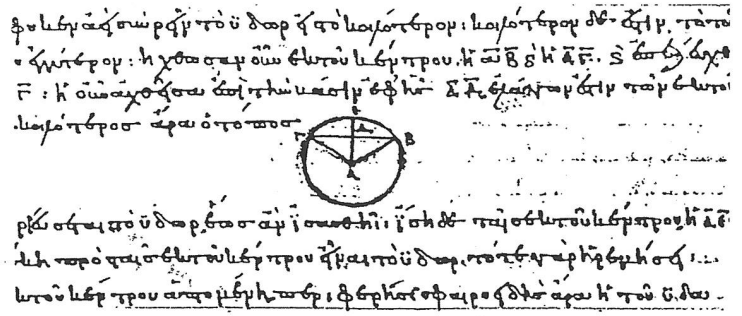 φυκεν ἀεὶ συρρεῖν τὸ ὕδωρ εἰς τὸ κοιλότερον: κοιλότερον δέ ἐστιν τὸ το
ἐγγύτερον: ἤχθωσαν οὖν ἐκ τοῦ κέντρου. ἡ ΑΒ καὶ ἡ ΑΓ. καὶ ἐπεζεύχθ
Γ: ἡ οὖν ἀχθεῖσα ἐπὶ τὴν βάσιν ἐφ' ἧς ΑΔ, ἐλάττων ἐστιν τῶν ἐκ τοῦ
κοιλότερος ἄρα ὁ τόπος
Ε
Γ Δ Β
Α
ρεύσεται τὸ ὕδωρ, ἕως ἂν ἰσασθῆι: ἴση δὲ ταῖς ἐκ τοῦ κέντρου, ἡ ΑΕ
κη πρὸς ταῖς ἐκ τοῦ κέντρου εἶναι τὸ ὕδωρ. τότε γὰρ ἠρεμήσει:
κ τοῦ κέντρου ἁπτομένη περιφερής· σφαιροειδὴς ἄρα ἡ τοῦ ὕδα